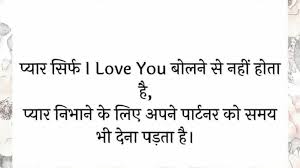 प्यार सिर्फ I Love You बोलने से नहीं होता
है,
प्यार निभाने के लिए अपने पार्टनर को समय
भी देना पड़ता है।